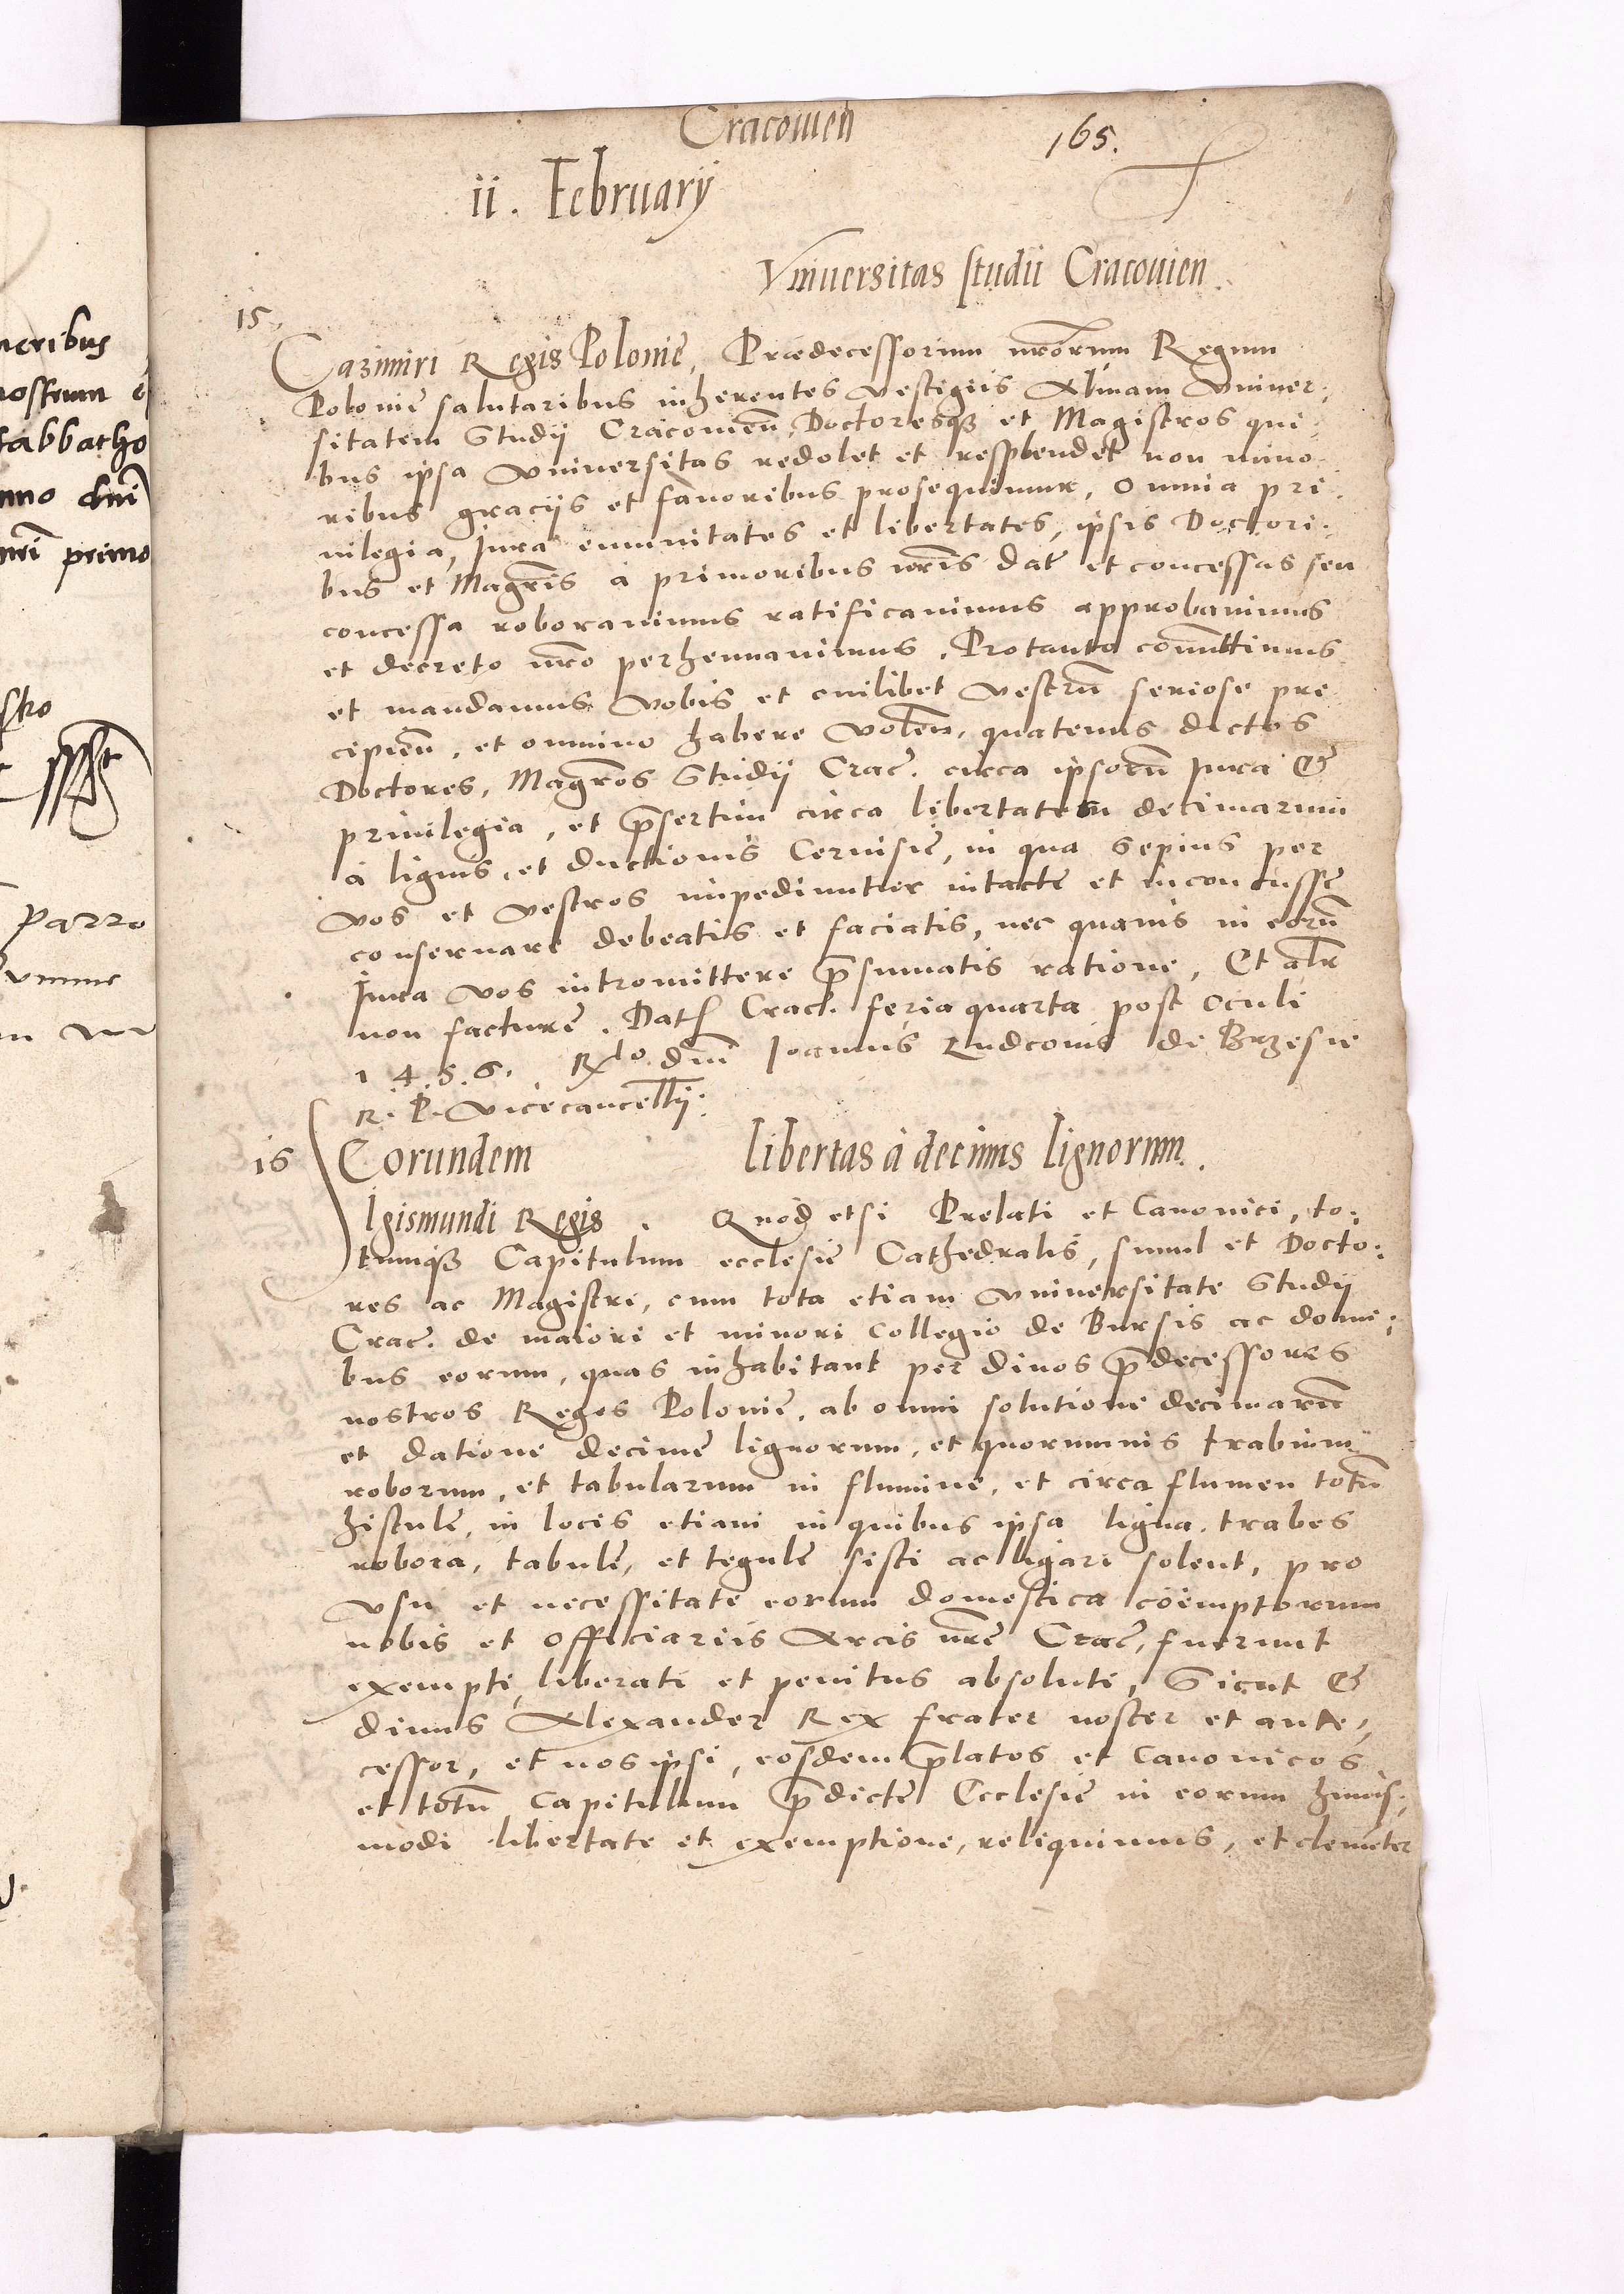 Cracouien
165.
ii. February
Vniuersitas studii Cracouien.
15.
Cazimiri Regis Polonię, Prædecessorum nr̃orum Regum
Polonię salutaribus inherentes vestigiis Almam Vniuer:
sitatem Studij Cracouień, Doctoresq3 et Magistros qui:
bus ipsa Vniuersitas redolet et resplendet non mino:
ribus graciis et fauoribus prosequimur, Omnia pri:
uilegia, Jura emunitates et libertates, ipsis Doctori:
bus et Magr̃is à primoribus nr̃is dat̃ et concessas seu
concessa roborauimus ratificauimus approbauimus
et decreto nr̃o perhennauimus. Protanto com̃ittimus
et mandamus Vobis et cuilibet vestrũ seriose pre
cipień, et omnino habere voleñ, quatenus dictos
Doctores, Magr̃os Studij Crac̃. circa ipsorũ Jura &
priuilegia, et p̃sertim circa libertatem decimarum
à lignis, et ductionis Ceruisię, in qua sepius per
vos et vestros impediuntur intactę et inconcussę
conseruare debeatis et faciatis, nec quauis in eorũ
Jura vos intromittere p̃sumatis ratione, Et alr̃
non facturę. Dat̃ Crac̃. feria quarta post Oculi
1.4.5.6. Rlo dnĩ Joannis Ludconis de Brzesie
R. P. Vicecancellĩj:
16
Eorundem
Libertas à decimis Lignorum.
Igismundi Regis. Quod etsi Prelati et Canonici, to:
tumq3 Capitulum ecclesię Cathedralis, simul et Docto:
res ac Magistri, cum tota etiam vniuersitate Studij
Crac̃. de maiori et minori Collegio de Bursis ac domi:
bus eorum, quas inhabitant per diuos p̃decessores
nostros Reges Polonię, ab omni solutione decimarũ
et datione decimę lignorum, et quorumuis trabium
roborum, et tabularum in flumine, et circa flumen totũ
histulę, in locis etiam in quibus ipsa ligna, trabes
robora, tabulę, et tegulę sisti ac ligari solent, pro
vsu et necessitate eorum domestica coëmptorum
nobis et officiariis Arcis nr̃ę Crac̃, fuerunt
exempti, liberati et penitus absoluti, Sicut &
diuus Alexander Rex frater noster et ante,
cessor, et nos ipsi, eosdem p̃latos et Canonicos
et totũ Capitulum p̃dictę Ecclesię in eorum huius:
modi libertate et exemptione, reliquimus, et clemẽter